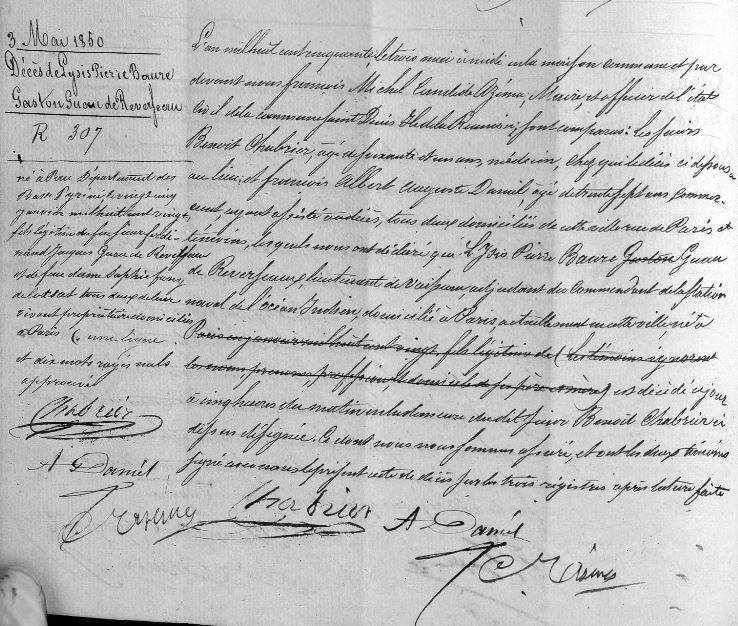 3 Mai 1850
Décès de Lysis Pierre Baure
Gaston Guau de Reverseau
R 307
né à Pau Département des
Basses Pyrénées le vingt cinq
janvier mil huit cent vingt,
fils légitime de feu sieur Ferdi-
nand Jacques Guau de Reverseau
et de feue dame Sophie
de tous deux de leur
vivant propriétaires domiciliés
à Paris (une ligne
et dix mots rayés nuls
approuvé
Chabrier
A Daniel
L'an mil huit cent cinquante le trois mai à midi en la maison commune et par
devant nous françois Michel Emile de Azéma, Maire et officier de l'état
civil de la commune Saint Denis Ile de la Réunion, sont comparus: les sieurs
Benoit Chabrier, agé de soixante et un ans, médecin, chez qui le décès ci dessous a
eu lieu; et françois Albert Auguste Daniel, agé de trente sept ans, commer-
cant, ayant assisté au décès, tous deux domiciliés de cette ville rue de Paris et
témoins, lesquels nous ont déclaré, que Lysis Pierre Baure Gaston Guau
de Reverseaux, lieutenant de vaisseau, adjudant du Commandant de la station
navale de l'océan Indien, domicilié à Paris actuellement en cette ville né à
Paris en janvier mil huit cent vingt fils légitime de (les témoins ignorent
les noms prenoms, profession, et domicile de ses père et mère) est décédé ce jour
à cinq heures du matin en la demeure du dit sieur Benoit Chabrier ci
dessus désignée. Ce dont nous nous sommes assuré, et ont les deux témoins
signé avec nous le present acte de décès sur les trois registres après lecture faite
Chabrier A Daniel